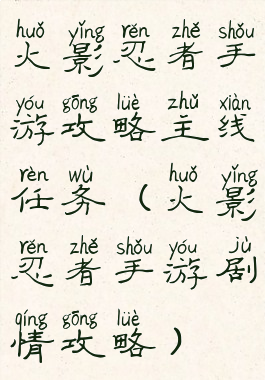 huǒ yǐng rěn zhě shǒu
火影忍者手
yóu gōng lüè zhǔ xiàn
游攻略主线
rèn wù huǒ yǐng
任务（火影
rěn zhě shǒu yóu jù
忍者手游剧
qíng gōng lüè
情攻略）